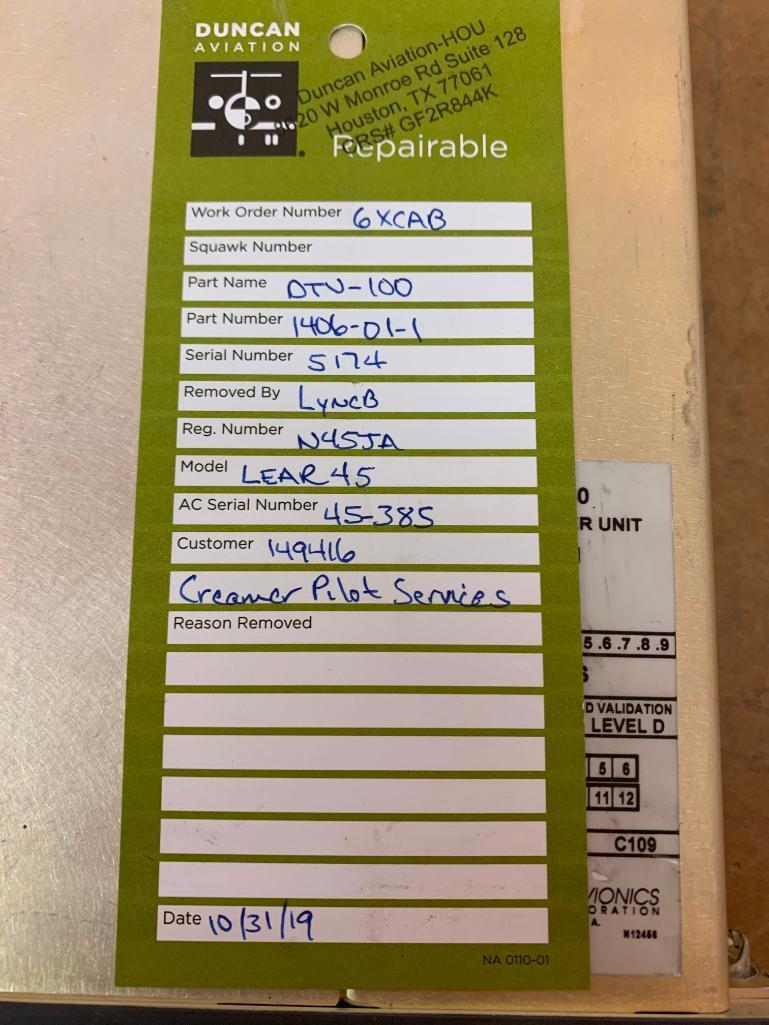 DUNCAN
AVIATION
Duncan Aviation-HOU
8620 W Monroe Rd Suite 128
Houston, TX 77061
CRS# GF2R844K
Repairable
Work Order Number 6XCAB
Squawk Number
Part Name DTU-100
Part Number 1406-01-1
Serial Number 5174
Removed By LyncB
Reg. Number N45JA
Model LEAR 45
AC Serial Number 45-385
Customer 149416
Creamer Pilot Services
Reason Removed
Date 10/31/19
NA 0110-01
0
R UNIT
5.6.7.8.9
D VALIDATION
LEVEL D
5 6
11 12
C109
VIONICS
ORATION
A.
N12456